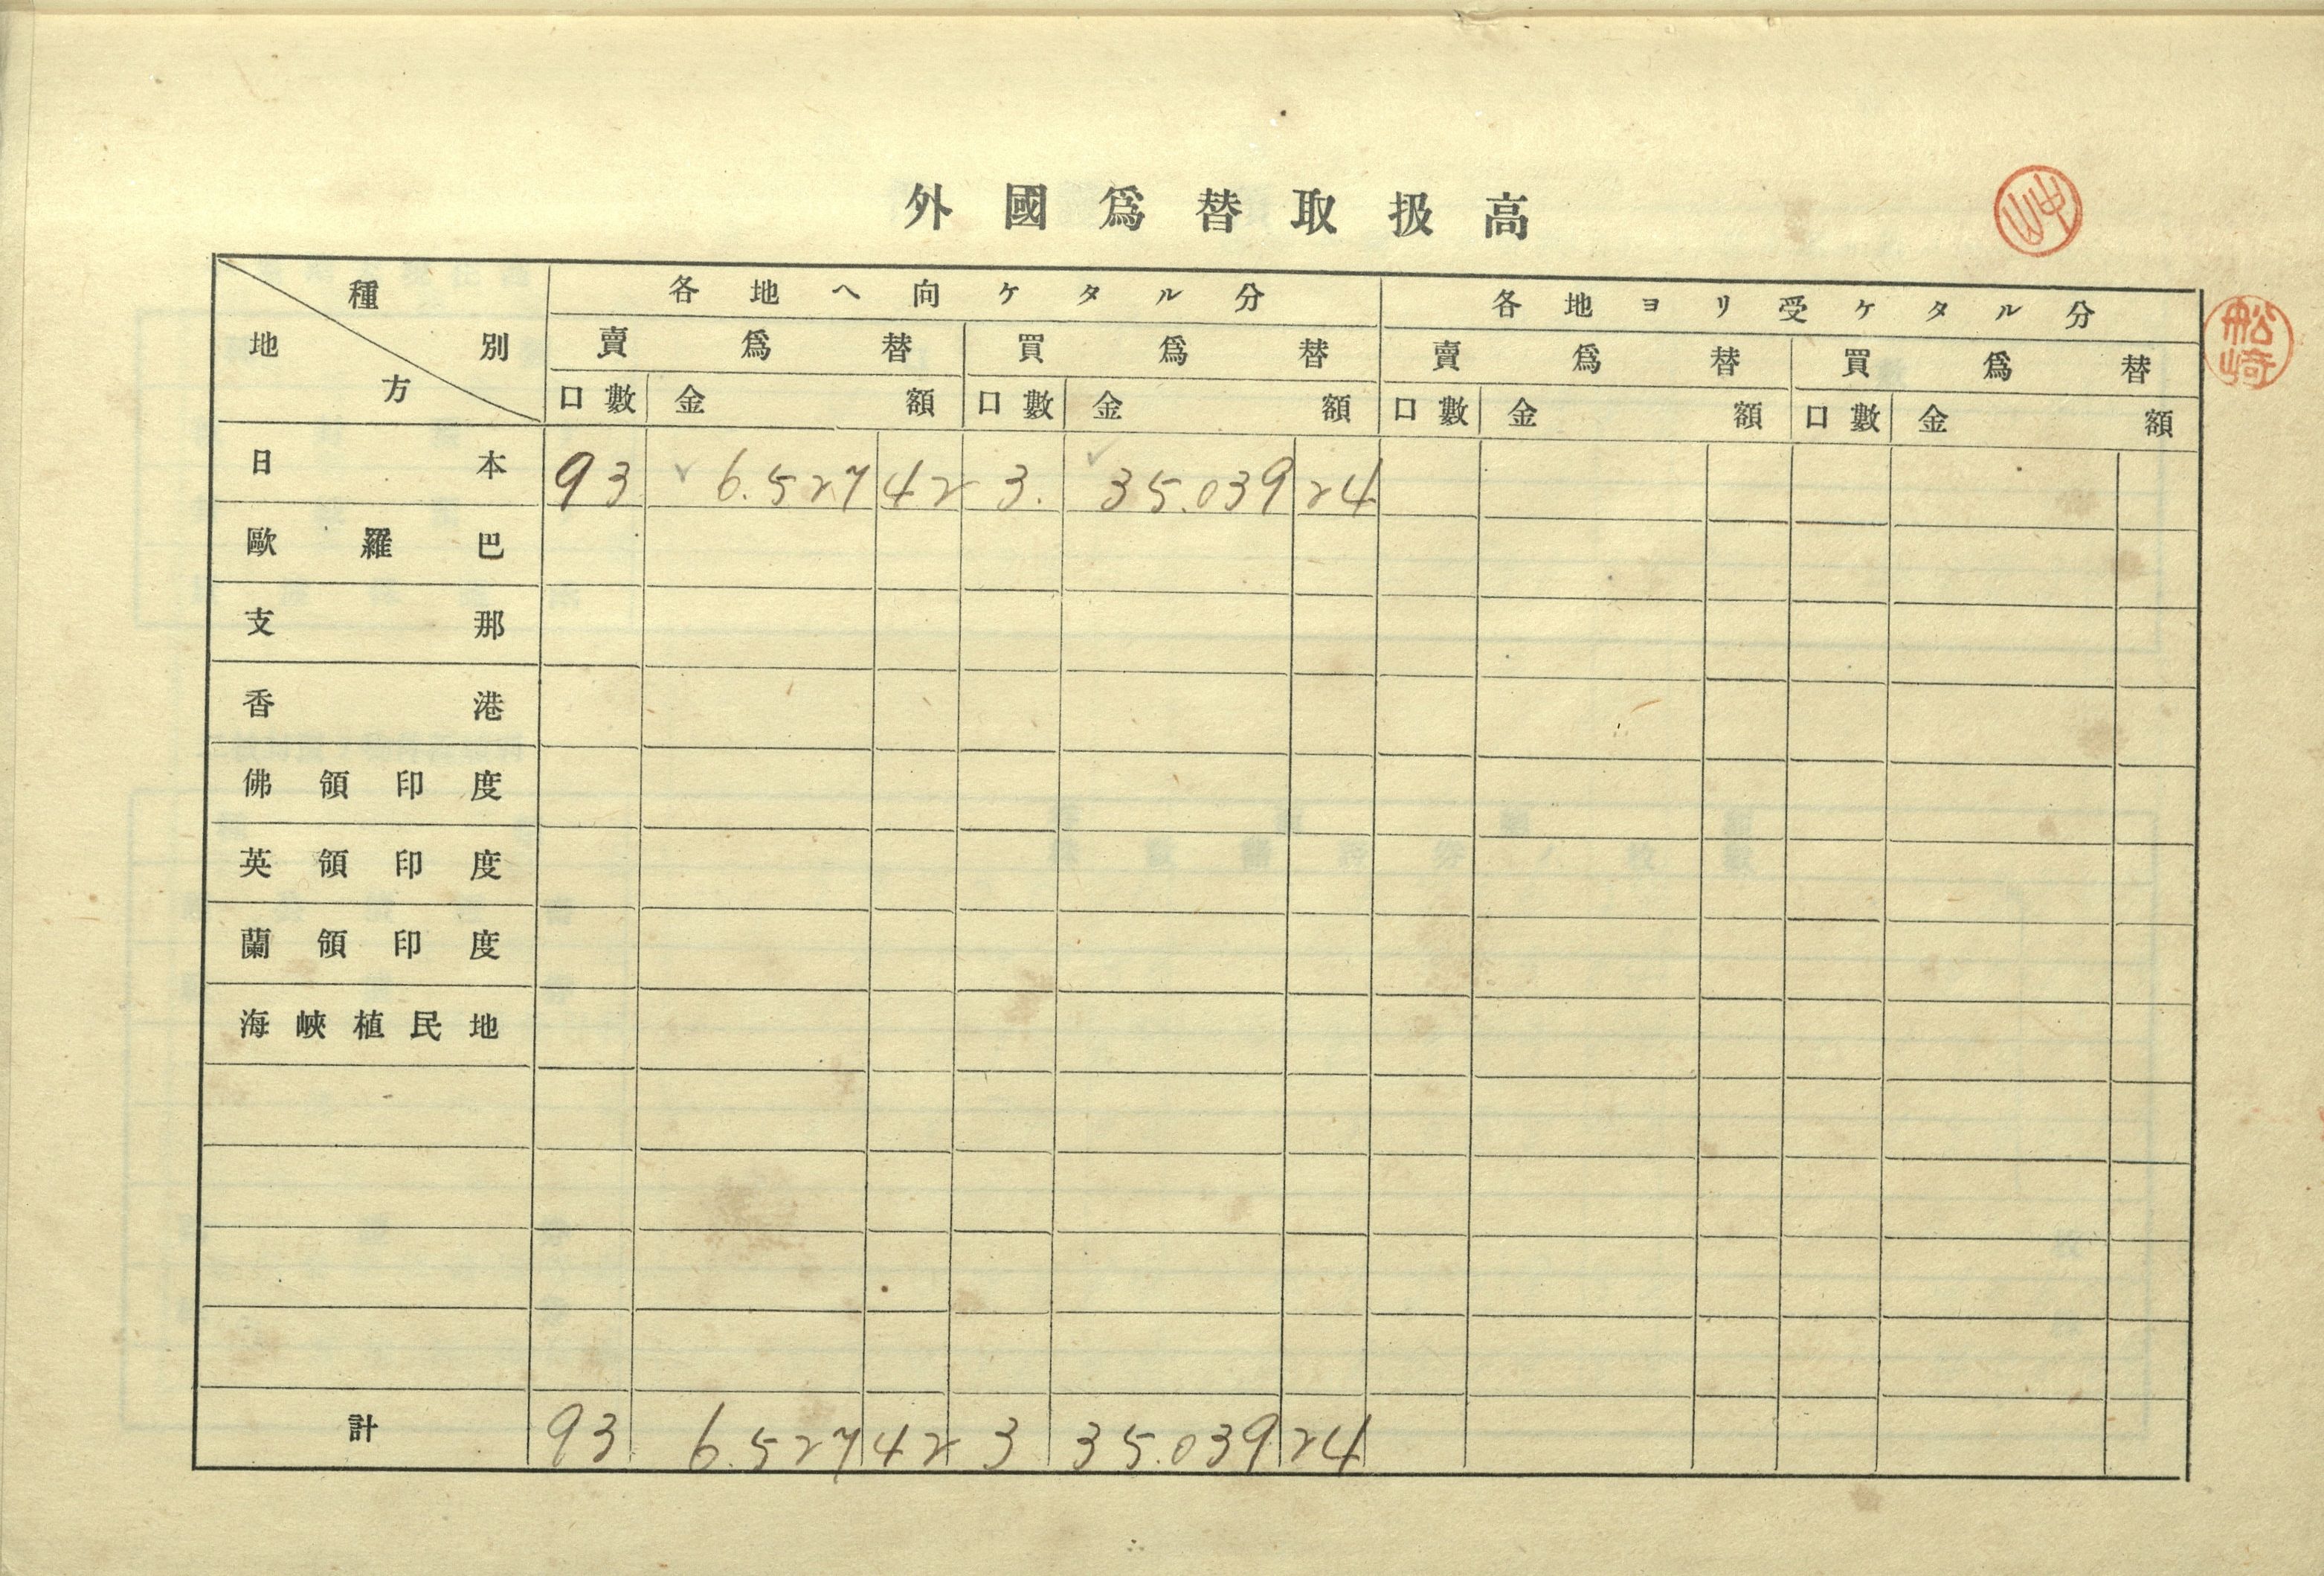 外國爲替取扱高
種別
地方
各地ヘ向ケタル分 各地ヨリ受ケタル分
賣爲替 買爲替 賣爲替 買爲替
口數 金額 口數 金額 口數 金額 口數 金額
日本 93 6.527 42 3. 35.039 24
歐羅巴
支那
香港
佛領印度
英領印度
蘭領印度
海峽植民地
計 93 6.527 42 3 35.039 24
中山
船崎